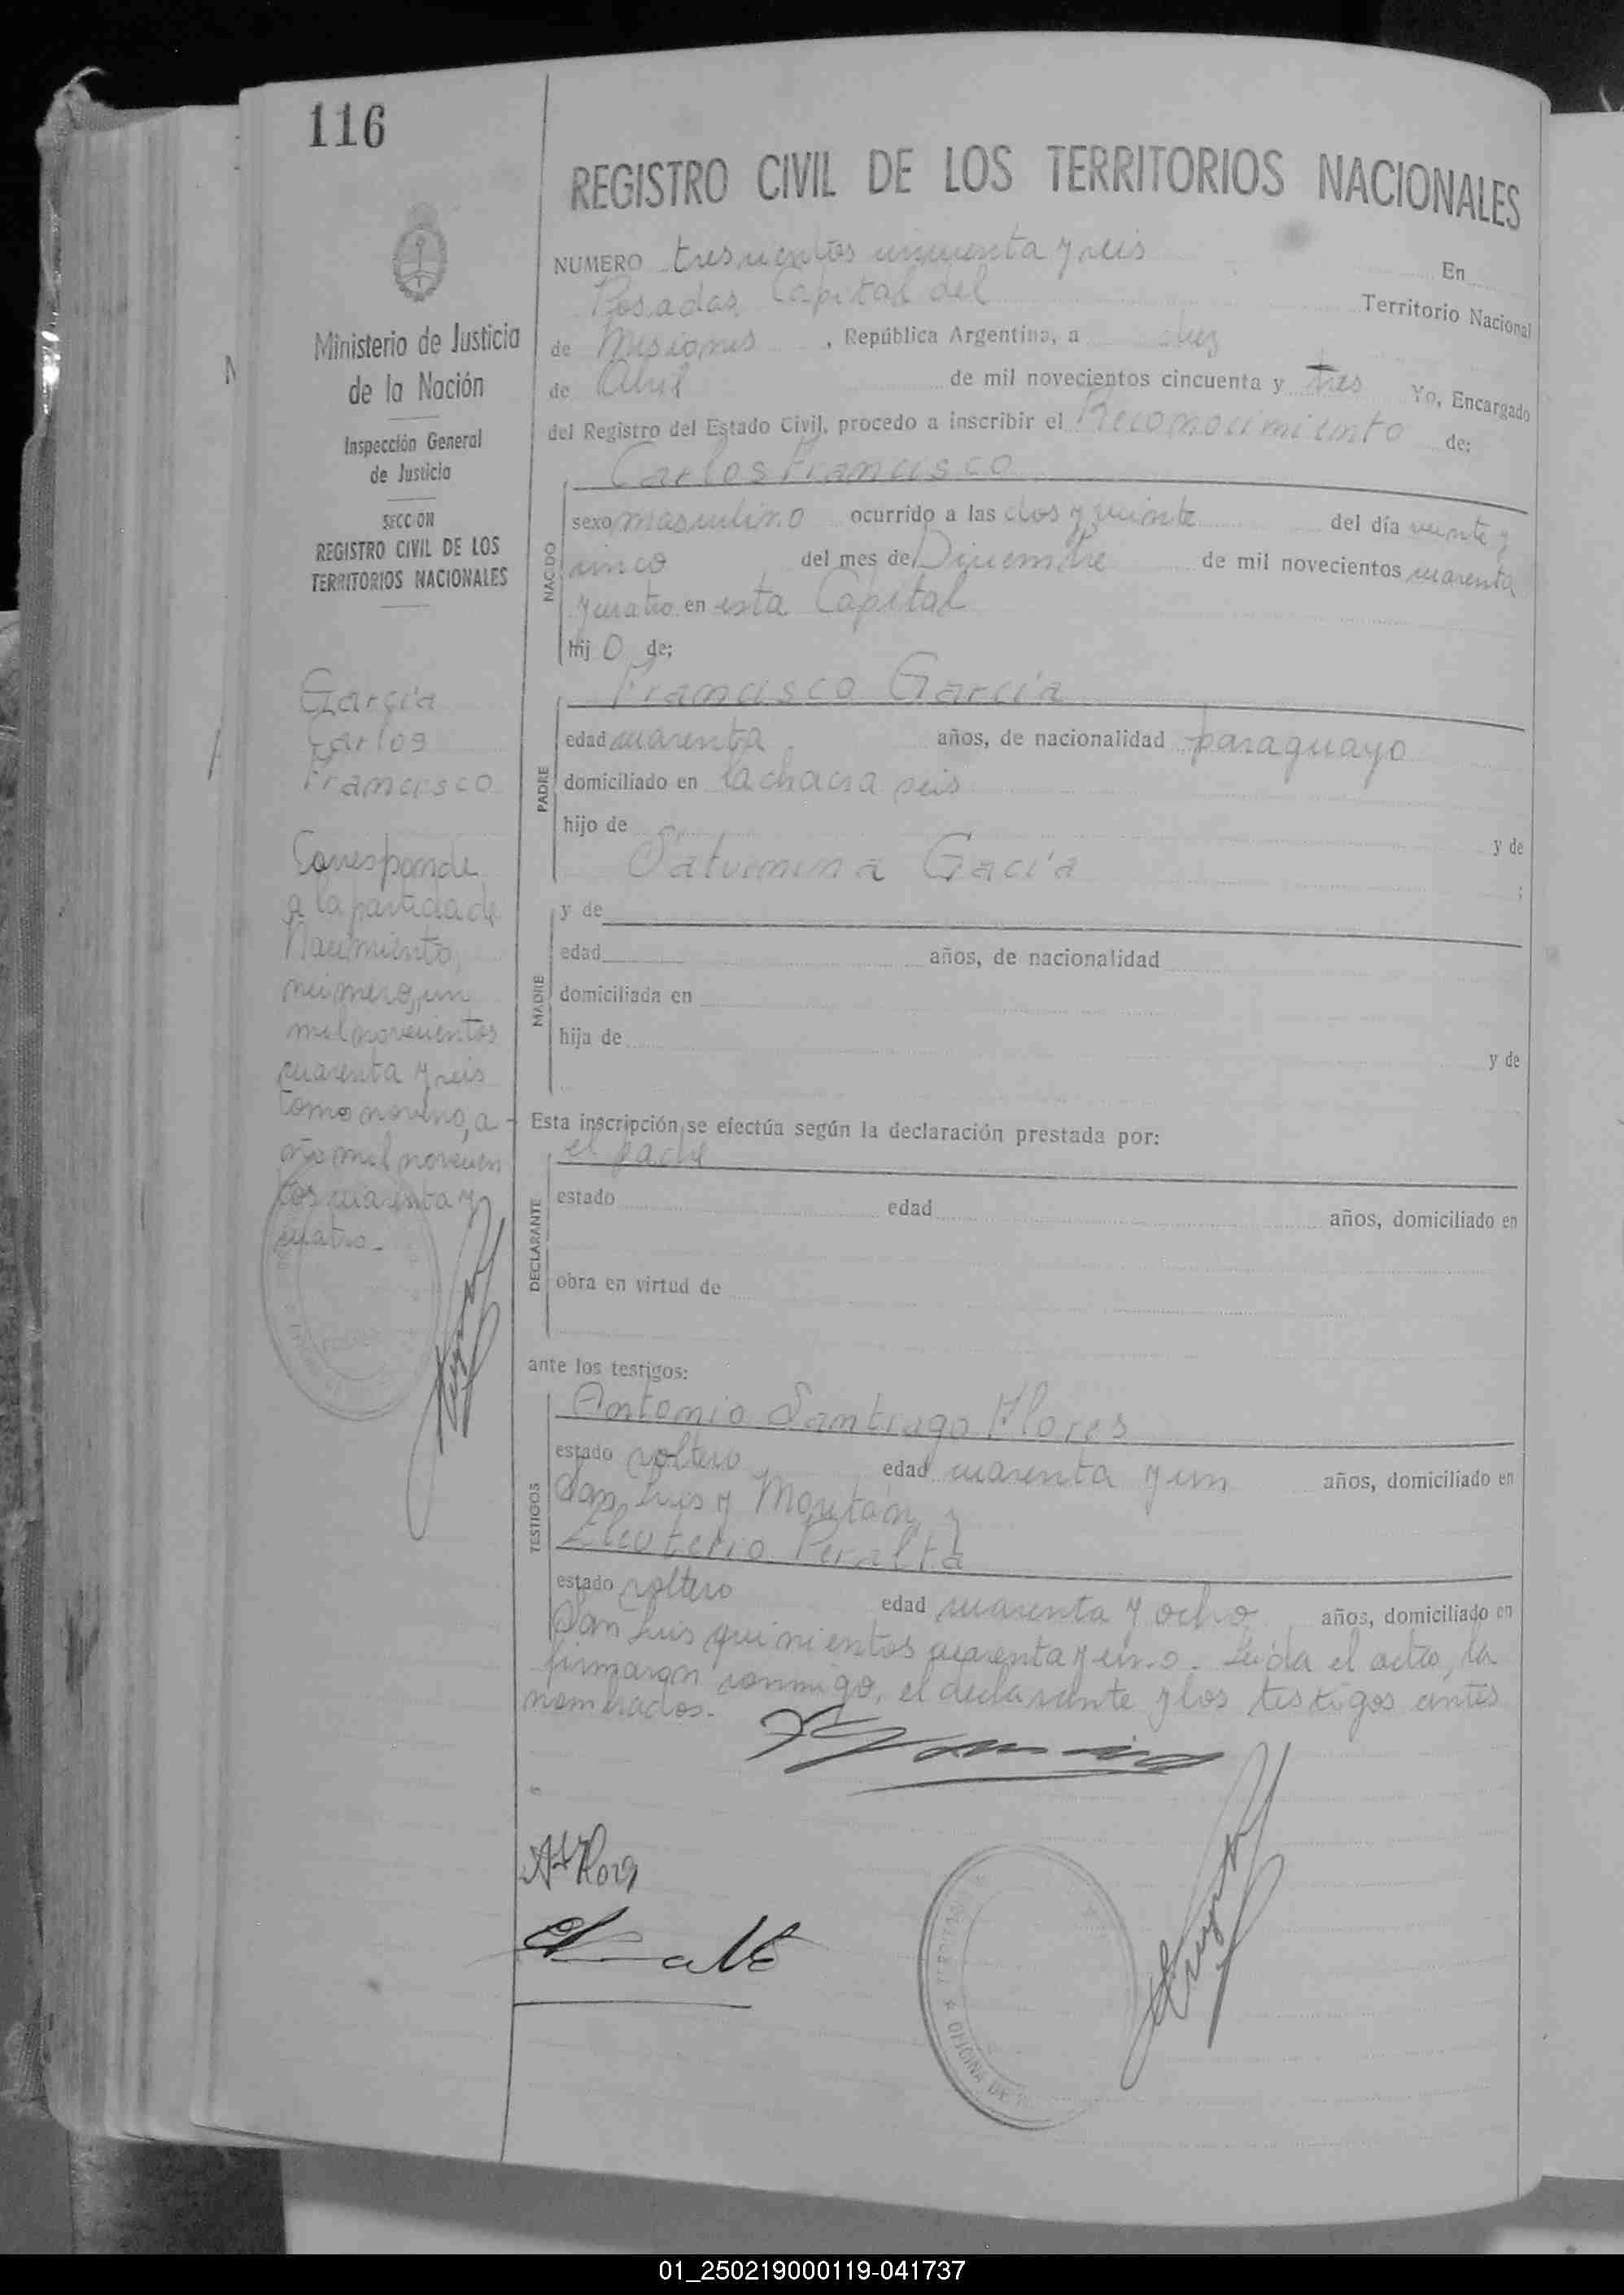 116
REGISTRO CIVIL DE LOS TERRITORIOS NACIONALES
NUMERO trescientos cincuenta y seis En
Posadas Capital del Territorio Nacional
de Misiones, República Argentina, a diez
de Abril de mil novecientos cincuenta y tres Yo, Encargado
del Registro del Estado Civil, procedo a inscribir el Reconocimiento de:
Carlos Francisco
NACIDO
sexo masculino ocurrido a las dos y veinte del día veinte y
cinco del mes de Diciembre de mil novecientos cuarenta
y cuatro en esta Capital
hijo de:
Francisco García
PADRE
edad cuarenta años, de nacionalidad paraguayo
domiciliado en la chacra seis
hijo de y de
Saturnina Gacía ;
MADRE
y de
edad años, de nacionalidad
domiciliada en
hija de y de
Esta inscripción se efectúa según la declaración prestada por:
el padre
DECLARANTE
estado edad años, domiciliado en
obra en virtud de
ante los testigos:
Antonio Santiago Flores
TESTIGOS
estado soltero edad cuarenta y un años, domiciliado en
San Luis y Moritán y
Eleuterio Peralta
estado soltero edad cuarenta y ocho años, domiciliado en
San Luis quinientos cuarenta y uno. Leída el acta, la
firmaron conmigo, el declarante y los testigos antes
nombrados.-
Ministerio de Justicia
de la Nación
Inspección General
de Justicia
SECCION
REGISTRO CIVIL DE LOS
TERRITORIOS NACIONALES
García
Carlos
Francisco
Corresponde
a la partida de
Nacimiento,
número, un
mil novecientos
cuarenta y seis
tomo noveno, a-
ño mil novecien
tos cuarenta y
cuatro.-
OFICINA DE
01_250219000119-041737